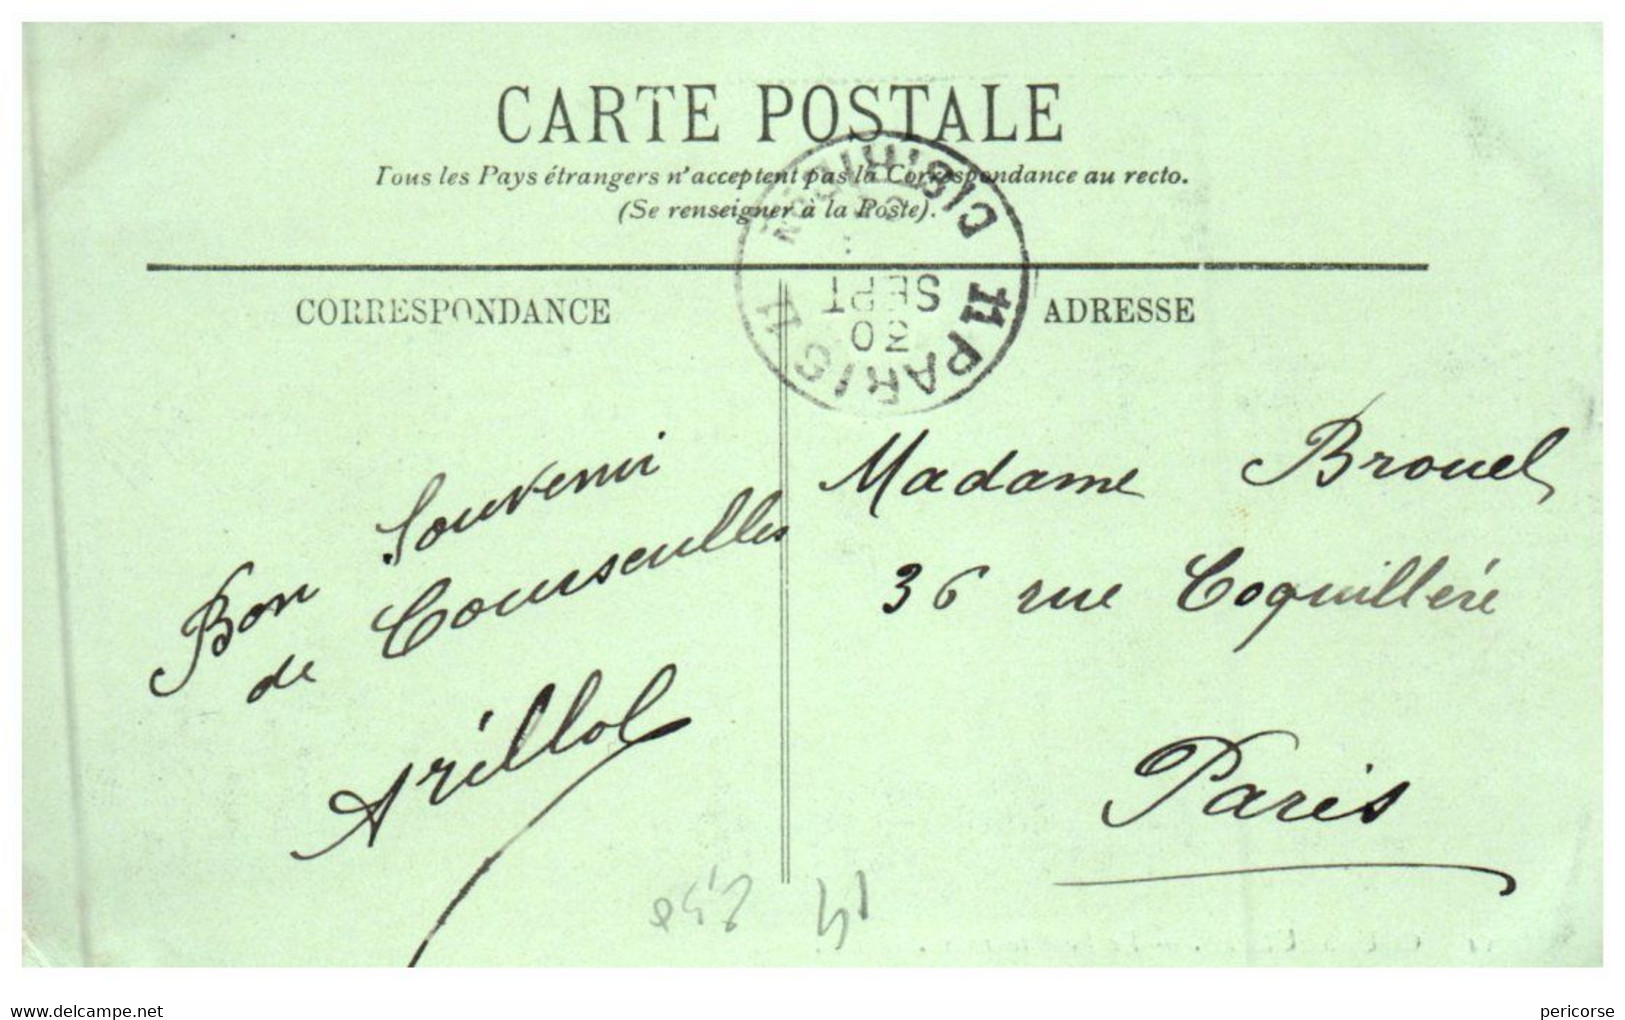 CARTE POSTALE
Tous les Pays étrangers n'acceptent pas la Correspondance au recto.
(Se renseigner à la Poste).
CORRESPONDANCE
ADRESSE
PARIS 11 DISTRIBUTION
30
SEPT
Bon Souvenir
de Courseulles
Madame Brouel
36 rue Coquillére
Paris
www.delcampe.net
pericorse